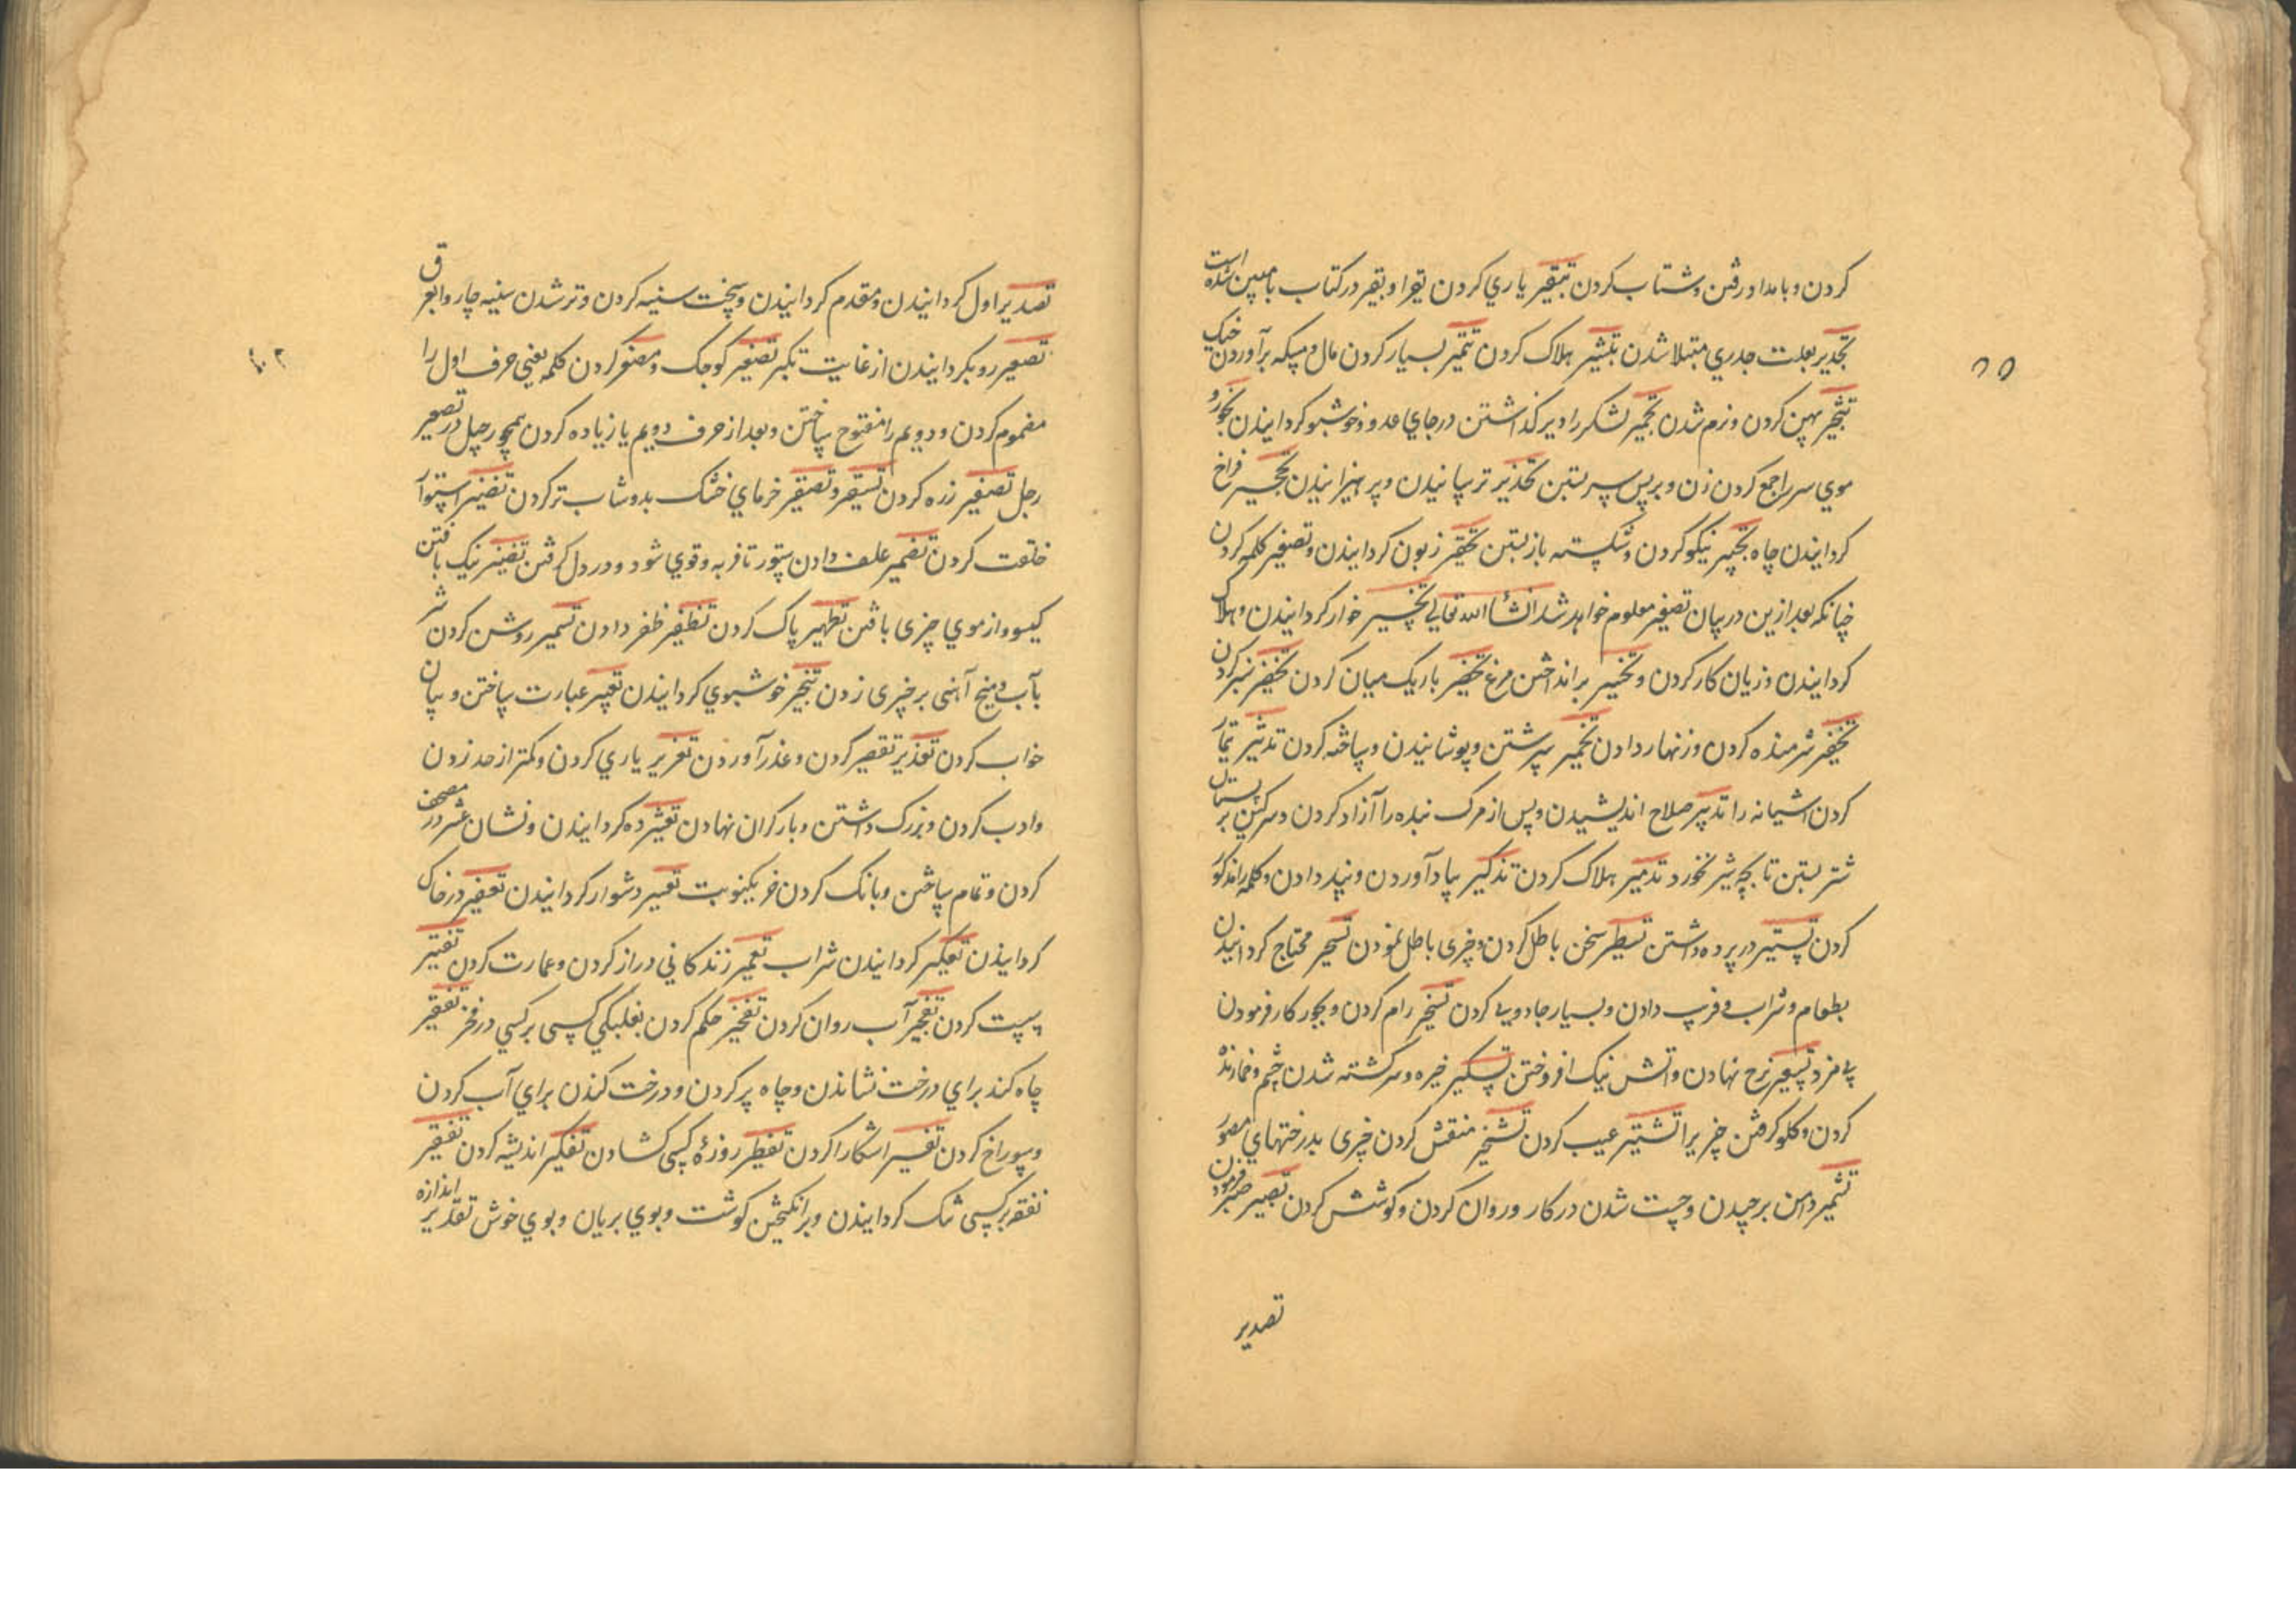 کردن و بامداد رفتن و شتاب کردن تبقیر یاری کردن یقوا و بقیر در کتاب مبین شده است
تجدیر بعلت جدری مبتلا شدن تبشیر هلاک کردن تثمیر بسیار کردن مال و میکه برآوردن خیک
تثجیر پهن کردن و نرم شدن تجمیر لشکر را دیر گذاشتن در جای عدو و خوشبو کردانیدن بخور و
موی سر را جمع کردن زن و بر پس سر بستن تحذیر ترسانیدن و پرهیزانیدن فراخ
کردانیدن چاه تجبیر نیکو کردن و شکسته باز بستن تحقیر زبون کردانیدن و تصغیر کلمه کردن
چنانکه بعد ازین در بیان تصغیر معلوم خواهد شد انشاء الله تعالی تخسیر خوار کردانیدن و هلاک
کردانیدن و زیان کار کردن و برانداختن مرغ تخصیر باریک میان کردن تخضیر سبز کردن
تخفیر شرمنده کردن و زنهار دادن تخمیر سرشتن و پوشانیدن و ساخته کردن تدثیر تمار
کردن آشیانه را تدبیر صلاح اندیشیدن و پس از مرک بنده را آزاد کردن و سرکین بر پستان
شتر بستن تا بچه شیر نخورد تدمیر هلاک کردن تذکیر بیاد آوردن و پند دادن و کلمه را مذکور
کردن تستیر در پرده داشتن تسطیر سخن باطل کردن و چیزی باطل نمودن تسحیر محتاج کردانیدن
بطعام و شراب و فریب دادن و بسیار جادویی کردن تسخیر رام کردن و بجور کار فرمودن
بی مزد تسعیر نرخ نهادن و آتش نیک افروختن تسکیر خیره و سرکشته شدن چشم و خمارنده
کردن و کلو کرفتن چیزیرا تشتیر عیب کردن تشجیر منقش کردن چیزی بدرختهای مصور
تشمیر دامن برچیدن و چست شدن در کار و روان کردن و کوشش کردن تصبیر صبر فرمودن
تصدیر
تصدیر اول کردانیدن و مقدم کردانیدن و سخت سینه کردن و تر شدن سینه چاروا بعرق
تصعیر رو بکردانیدن از غایت تکبر تصغیر کوچک و مصغر کردن کلمه یعنی حرف اول را
مضموم کردن و دویم را مفتوح ساختن و بعد از حرف دویم یا زیاده کردن همچو رجیل در تصغیر
رجل تصفیر زرد کردن تسقیر و تصقیر خرمای خشک بدوشاب تر کردن استوار
خلقت کردن تضمیر علف دادن ستور تا فربه و قوی شود و در دل کرفتن تضفیر نیک بافتن
کیسو و از موی چیزی بافتن تطهیر پاک کردن تظفیر ظفر دادن تسمیر روشن کردن شر
بآب و میخ آهنی بر چیزی زدن تبخیر خوشبوی کردانیدن تعبیر عبارت ساختن و بیان
خواب کردن تعذیر تقصیر کردن و عذر آوردن تعزیر یاری کردن و کمتر از حد زدن
و ادب کردن و بزرک داشتن و بار کران نهادن تعشیر ده کردانیدن و نشان عشر در مصحف
کردن و تمام ساختن و بانک کردن خر بیکنوبت تعسیر دشوار کردانیدن تعفیر در خاک
کردانیدن تعکیر کردانیدن شراب تعمیر زندکانی دراز کردن و عمارت کردن تفتیر
سست کردن تفجیر آب روان کردن تفخیر حکم کردن بغلبکی کسی بر کسی در فخر تفقیر
چاه کند برای درخت نشاندن و چاه پر کردن و درخت کندن برای آب کردن
و سوراخ کردن تفسیر آشکارا کردن تفطیر روزۀ کسی کشادن تفکیر اندیشه کردن تقتیر
نفقه بر کسی تنک کردانیدن و برانکیختن کوشت و بوی بریان و بوی خوش تقدیر اندازه